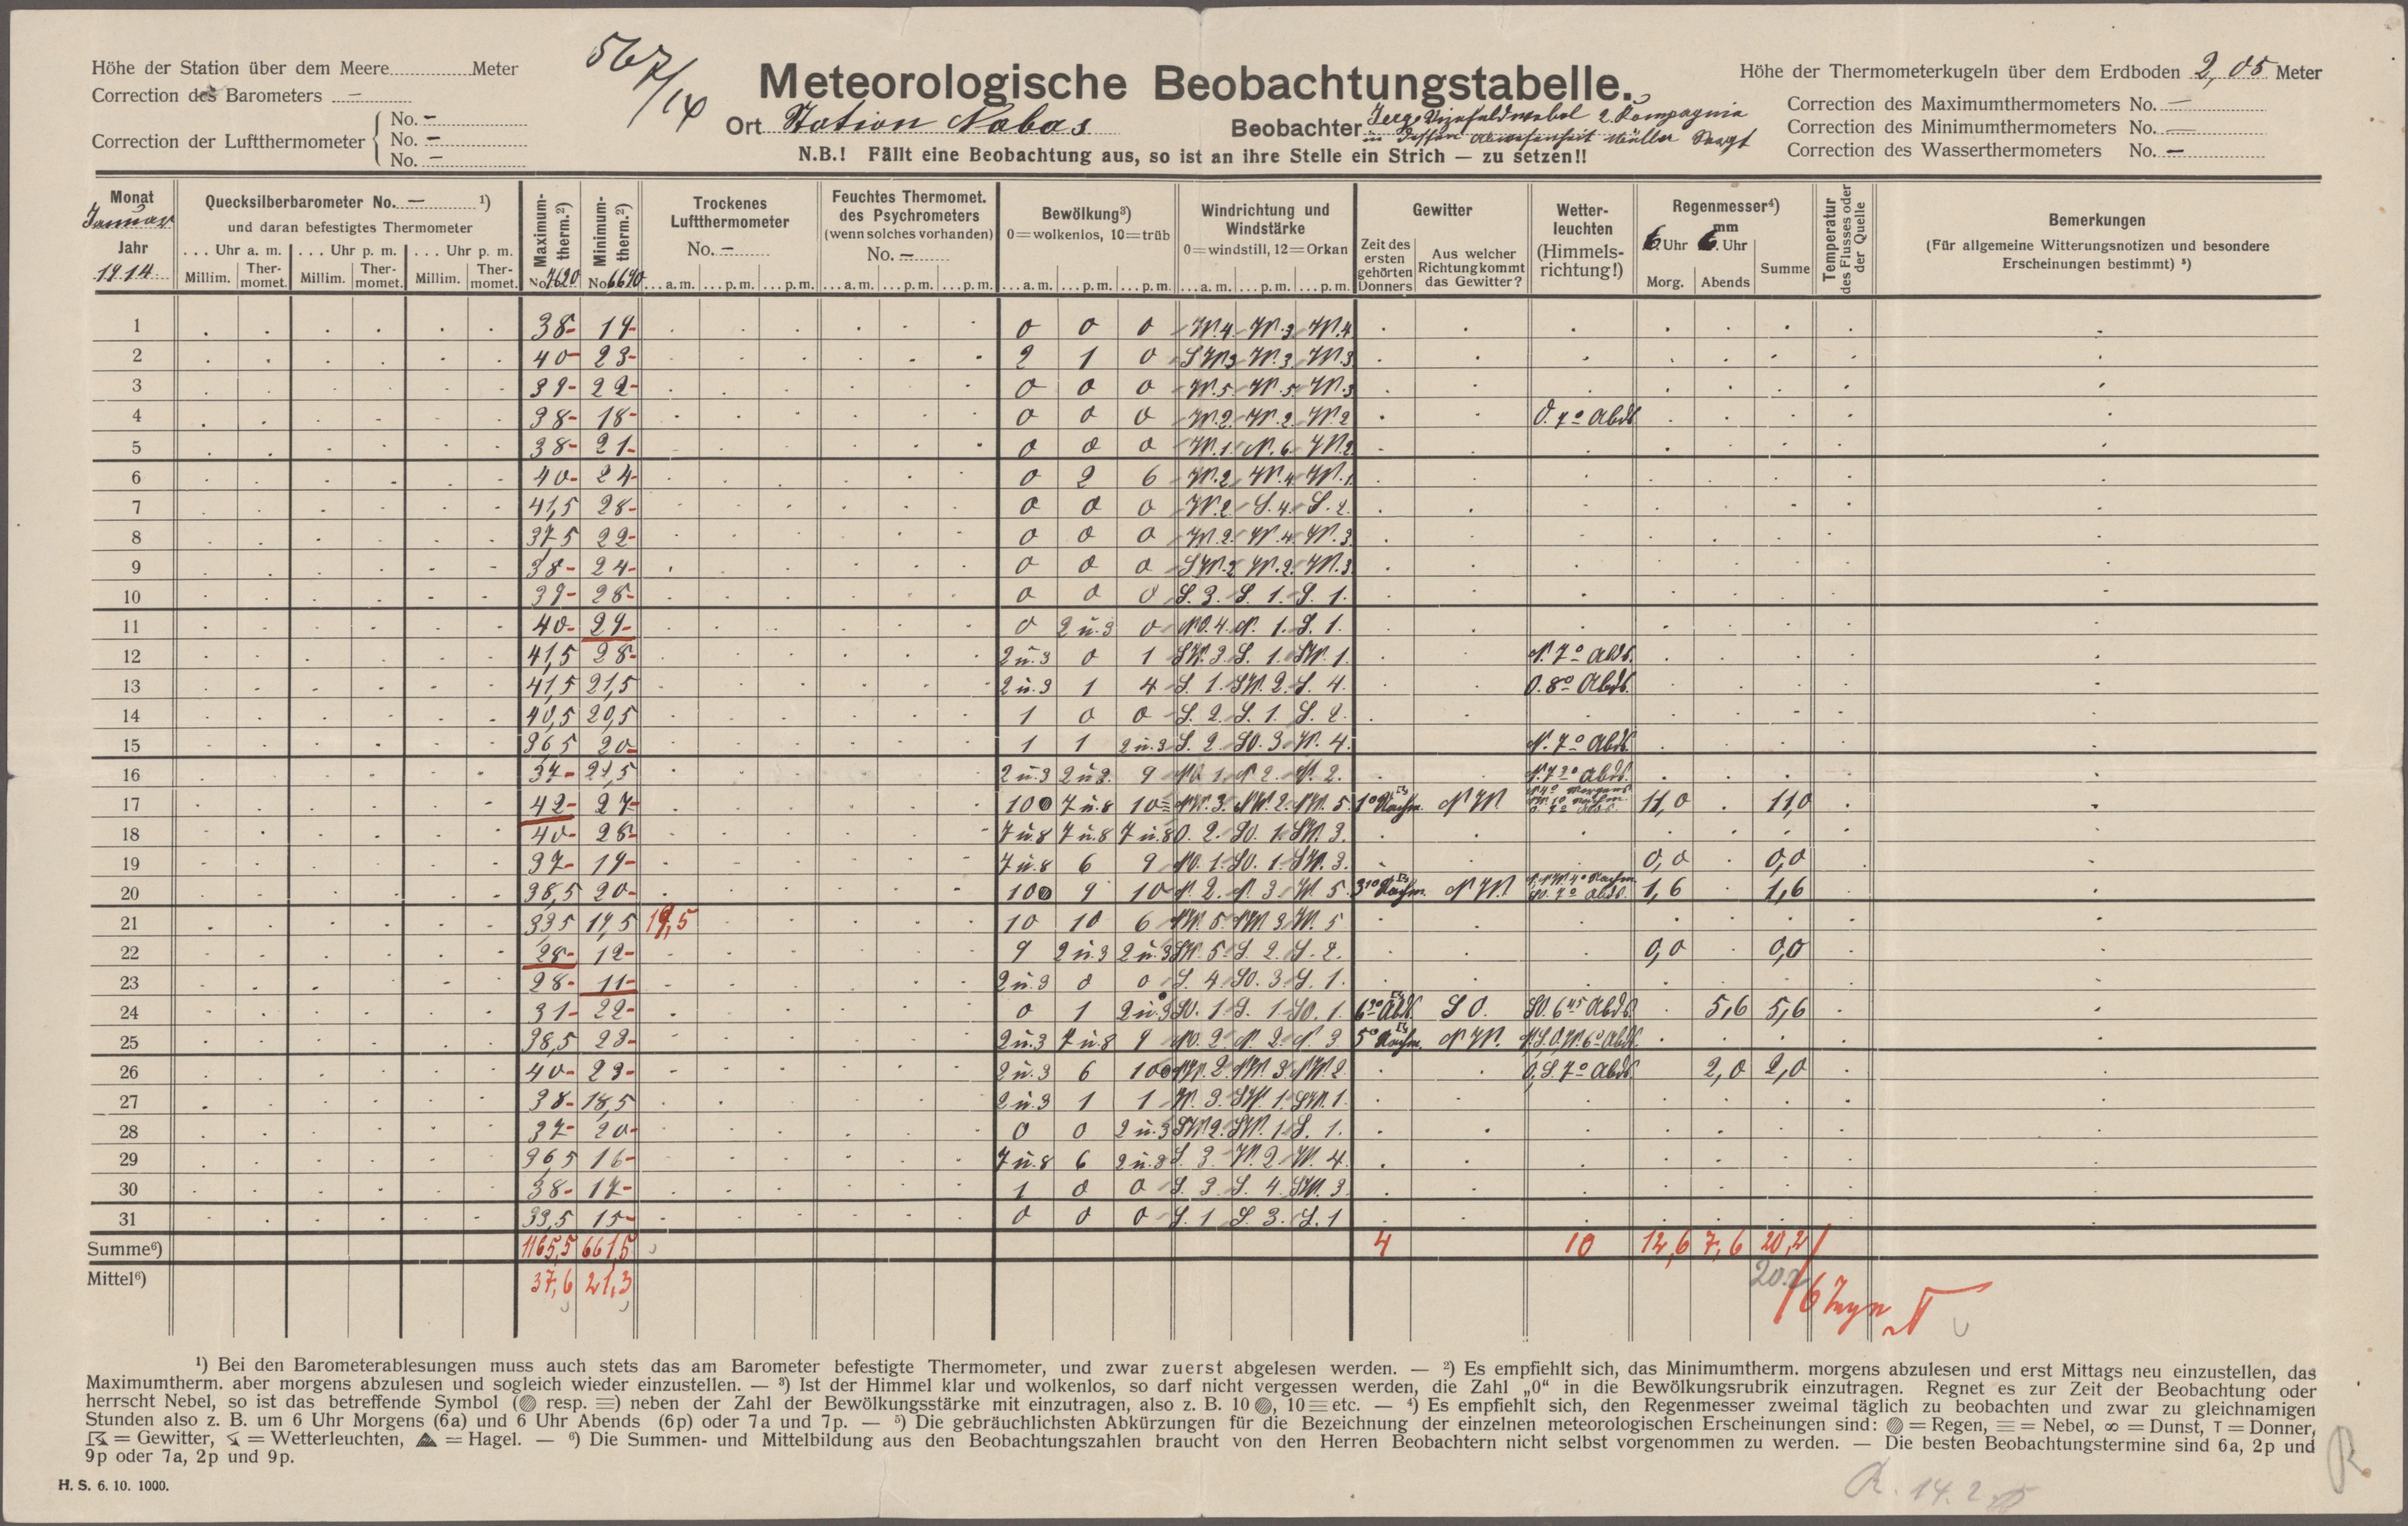 Höhe der Station über dem Meere Meter
Correction des Barometers —
Correction der Luftthermometer
No. —
No. —
No. —
567/14
Meteorologische Beobachtungstabelle.
Ort Station Nabas
Beobachter Vizefeldwebel 2. Kompagnie
in dessen Abwesenheit Müller
N.B.! Fällt eine Beobachtung aus, so ist an ihre Stelle ein Strich — zu setzen!!
Höhe der Thermometerkugeln über dem Erdboden 2,05 Meter
Correction des Maximumthermometers No. —
Correction des Minimumthermometers No. —
Correction des Wasserthermometers No. —
Monat Januar Jahr 1914
Quecksilberbarometer No. — ¹)
und daran befestigtes Thermometer
... Uhr a. m. ... Uhr p. m. ... Uhr p. m.
Millim. Thermomet. Millim. Thermomet. Millim. Thermomet.
Maximumtherm.²) No 7620
Minimumtherm.²) No 6670
Trockenes Luftthermometer No. —
... a.m. ... p.m. ... p.m.
Feuchtes Thermomet. des Psychrometers (wenn solches vorhanden) No. —
... a.m. ... p.m. ... p.m.
Bewölkung³)
0=wolkenlos, 10=trüb
... a.m. ... p.m. ... p.m.
Windrichtung und Windstärke
0=windstill, 12=Orkan
... a.m. ... p.m. ... p.m.
Gewitter
Zeit des ersten gehörten Donners
Aus welcher Richtung kommt das Gewitter?
Wetterleuchten (Himmelsrichtung!)
Regenmesser⁴)
mm
6. Uhr Morg. 6. Uhr Abends Summe
Temperatur des Flusses oder der Quelle
Bemerkungen
(Für allgemeine Witterungsnotizen und besondere Erscheinungen bestimmt) ⁵)
1 38- 19- 0 0 0 W.4 W.3 W.4
2 40- 23- 2 1 0 SW3 W.3 W.3
3 39- 22- 0 0 0 W.5 W.5 W.3
4 38- 18- 0 0 0 W.2 W.2 W.2 O. 7⁰ Abds.
5 38- 21- 0 0 0 W.1 N.6 W.2
6 40- 24- 0 2 6 W.2 W.4 W.1
7 41,5 28- 0 0 0 W.2 S.4 S.2
8 37,5 22- 0 0 0 W.2 W.4 W.3
9 38- 24- 0 0 0 SW.2 W.2 W.3
10 39- 28- 0 0 0 S.3. S.1. S.1.
11 40- 29- 0 2 u.3 0 NO.4. N.1. S.1.
12 41,5 28- 2 u.3 0 1 SW.3 S.1. SW.1 N. 7⁰ Abds.
13 41,5 21,5 2 u.3 1 4 S.1. SW.2. S.4. O. 8⁰ Abds.
14 40,5 20,5 1 0 0 S.2. S.1. S.2.
15 36,5 20- 1 1 2 u.3 S.2. SO.3. W.4. N. 7⁰ Abds.
16 37- 21,5 2 u.3 2 u.3. 9 NO.1. N.2. N.2. N. 7³⁰ Abds.
17 42- 27- 10 7 u.8 10 NW.3. NW.2. NW.5. 1⁰ Nachm. NW 11,0 11,0
18 40- 28- 7 u.8 7 u.8 7 u.8 O.2. SO.1. SW.3.
19 37- 19- 7 u.8 6 9 NO.1. SO.1. SW.3. 0,0 0,0
20 38,5 20- 10 9 10 N.2. N.3. W.5. 3¹⁰ Nachm. NW. SO. 7⁰ Abds. 1,6 1,6
21 33,5 19,5 19,5 10 10 6 NW.5. NW.3. W.5
22 28- 12- 9 2 u.3 2 u.3 SW.5. S.2. S.2. 0,0 0,0
23 28- 11- 2 u.3 0 0 S.4. SO.3. S.1.
24 31- 22- 0 1 2 u.3 SO.1. S.1. SO.1. 6³⁰ Abds. SO. SO. 6⁴⁵ Abds. 5,6 5,6
25 38,5 23- 2 u.3 7 u.8 9 NO.2. N.2. N.3 5⁰ Nachm. NW. N.S.O.W. 6⁰ Abds.
26 40- 23- 2 u.3 6 10 NW.2. NW.3. NW.2. O.S. 7⁰ Abds. 2,0 2,0
27 38- 18,5 2 u.3 1 1 W.3. SW.1. SW.1.
28 37- 20- 0 0 2 u.3 SW.2. SW.1. S.1.
29 36,5 16- 7 u.8 6 2 u.3 S.3. W.2. W.4.
30 38- 17- 1 0 0 S.3. S.4. SW.3.
31 33,5 15- 0 0 0 S.1 S.3. S.1
Summe⁶) 1165,5 661,5 4 10 12,6 7,6 20,2
Mittel⁶) 37,6 21,3 20.2
¹) Bei den Barometerablesungen muss auch stets das am Barometer befestigte Thermometer, und zwar zuerst abgelesen werden. — ²) Es empfiehlt sich, das Minimumtherm. morgens abzulesen und erst Mittags neu einzustellen, das
Maximumtherm. aber morgens abzulesen und sogleich wieder einzustellen. — ³) Ist der Himmel klar und wolkenlos, so darf nicht vergessen werden, die Zahl „0“ in die Bewölkungsrubrik einzutragen. Regnet es zur Zeit der Beobachtung oder
herrscht Nebel, so ist das betreffende Symbol (◍ resp. ≡) neben der Zahl der Bewölkungsstärke mit einzutragen, also z. B. 10 ◍, 10 ≡ etc. — ⁴) Es empfiehlt sich, den Regenmesser zweimal täglich zu beobachten und zwar zu gleichnamigen
Stunden also z. B. um 6 Uhr Morgens (6a) und 6 Uhr Abends (6p) oder 7a und 7p. — ⁵) Die gebräuchlichsten Abkürzungen für die Bezeichnung der einzelnen meteorologischen Erscheinungen sind: ◍ = Regen, ≡ = Nebel, ∞ = Dunst, T = Donner,
= Gewitter, = Wetterleuchten, = Hagel. — ⁶) Die Summen- und Mittelbildung aus den Beobachtungszahlen braucht von den Herren Beobachtern nicht selbst vorgenommen zu werden. — Die besten Beobachtungstermine sind 6a, 2p und
9p oder 7a, 2p und 9p.
H. S. 6. 10. 1000.